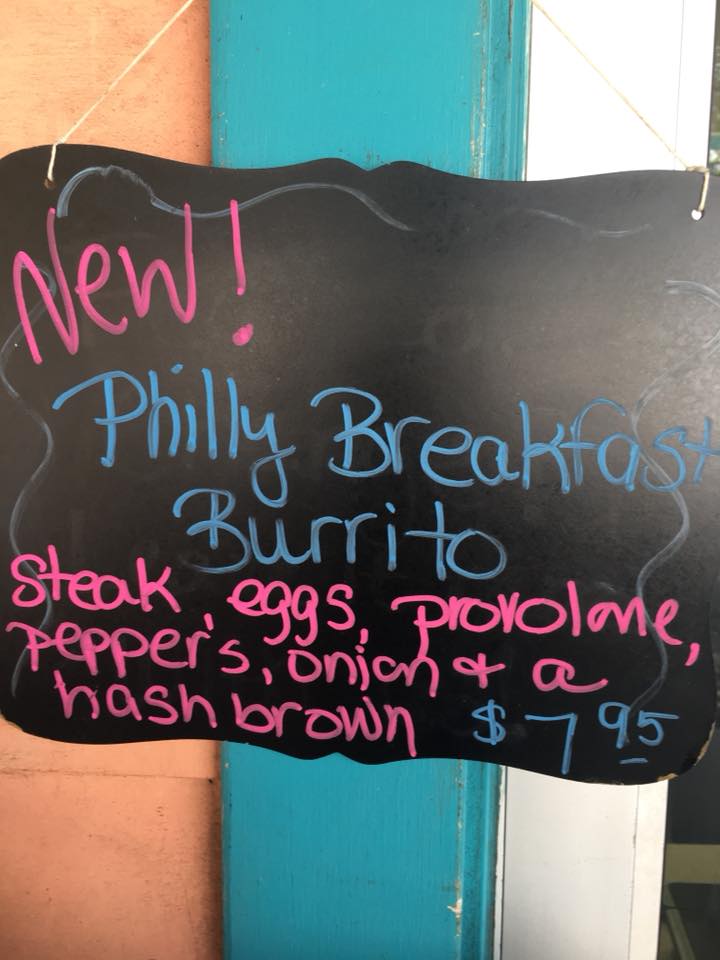 New!
Philly Breakfast
Burrito
Steak, eggs, provolone,
pepper's, onion & a
hash brown $7.95